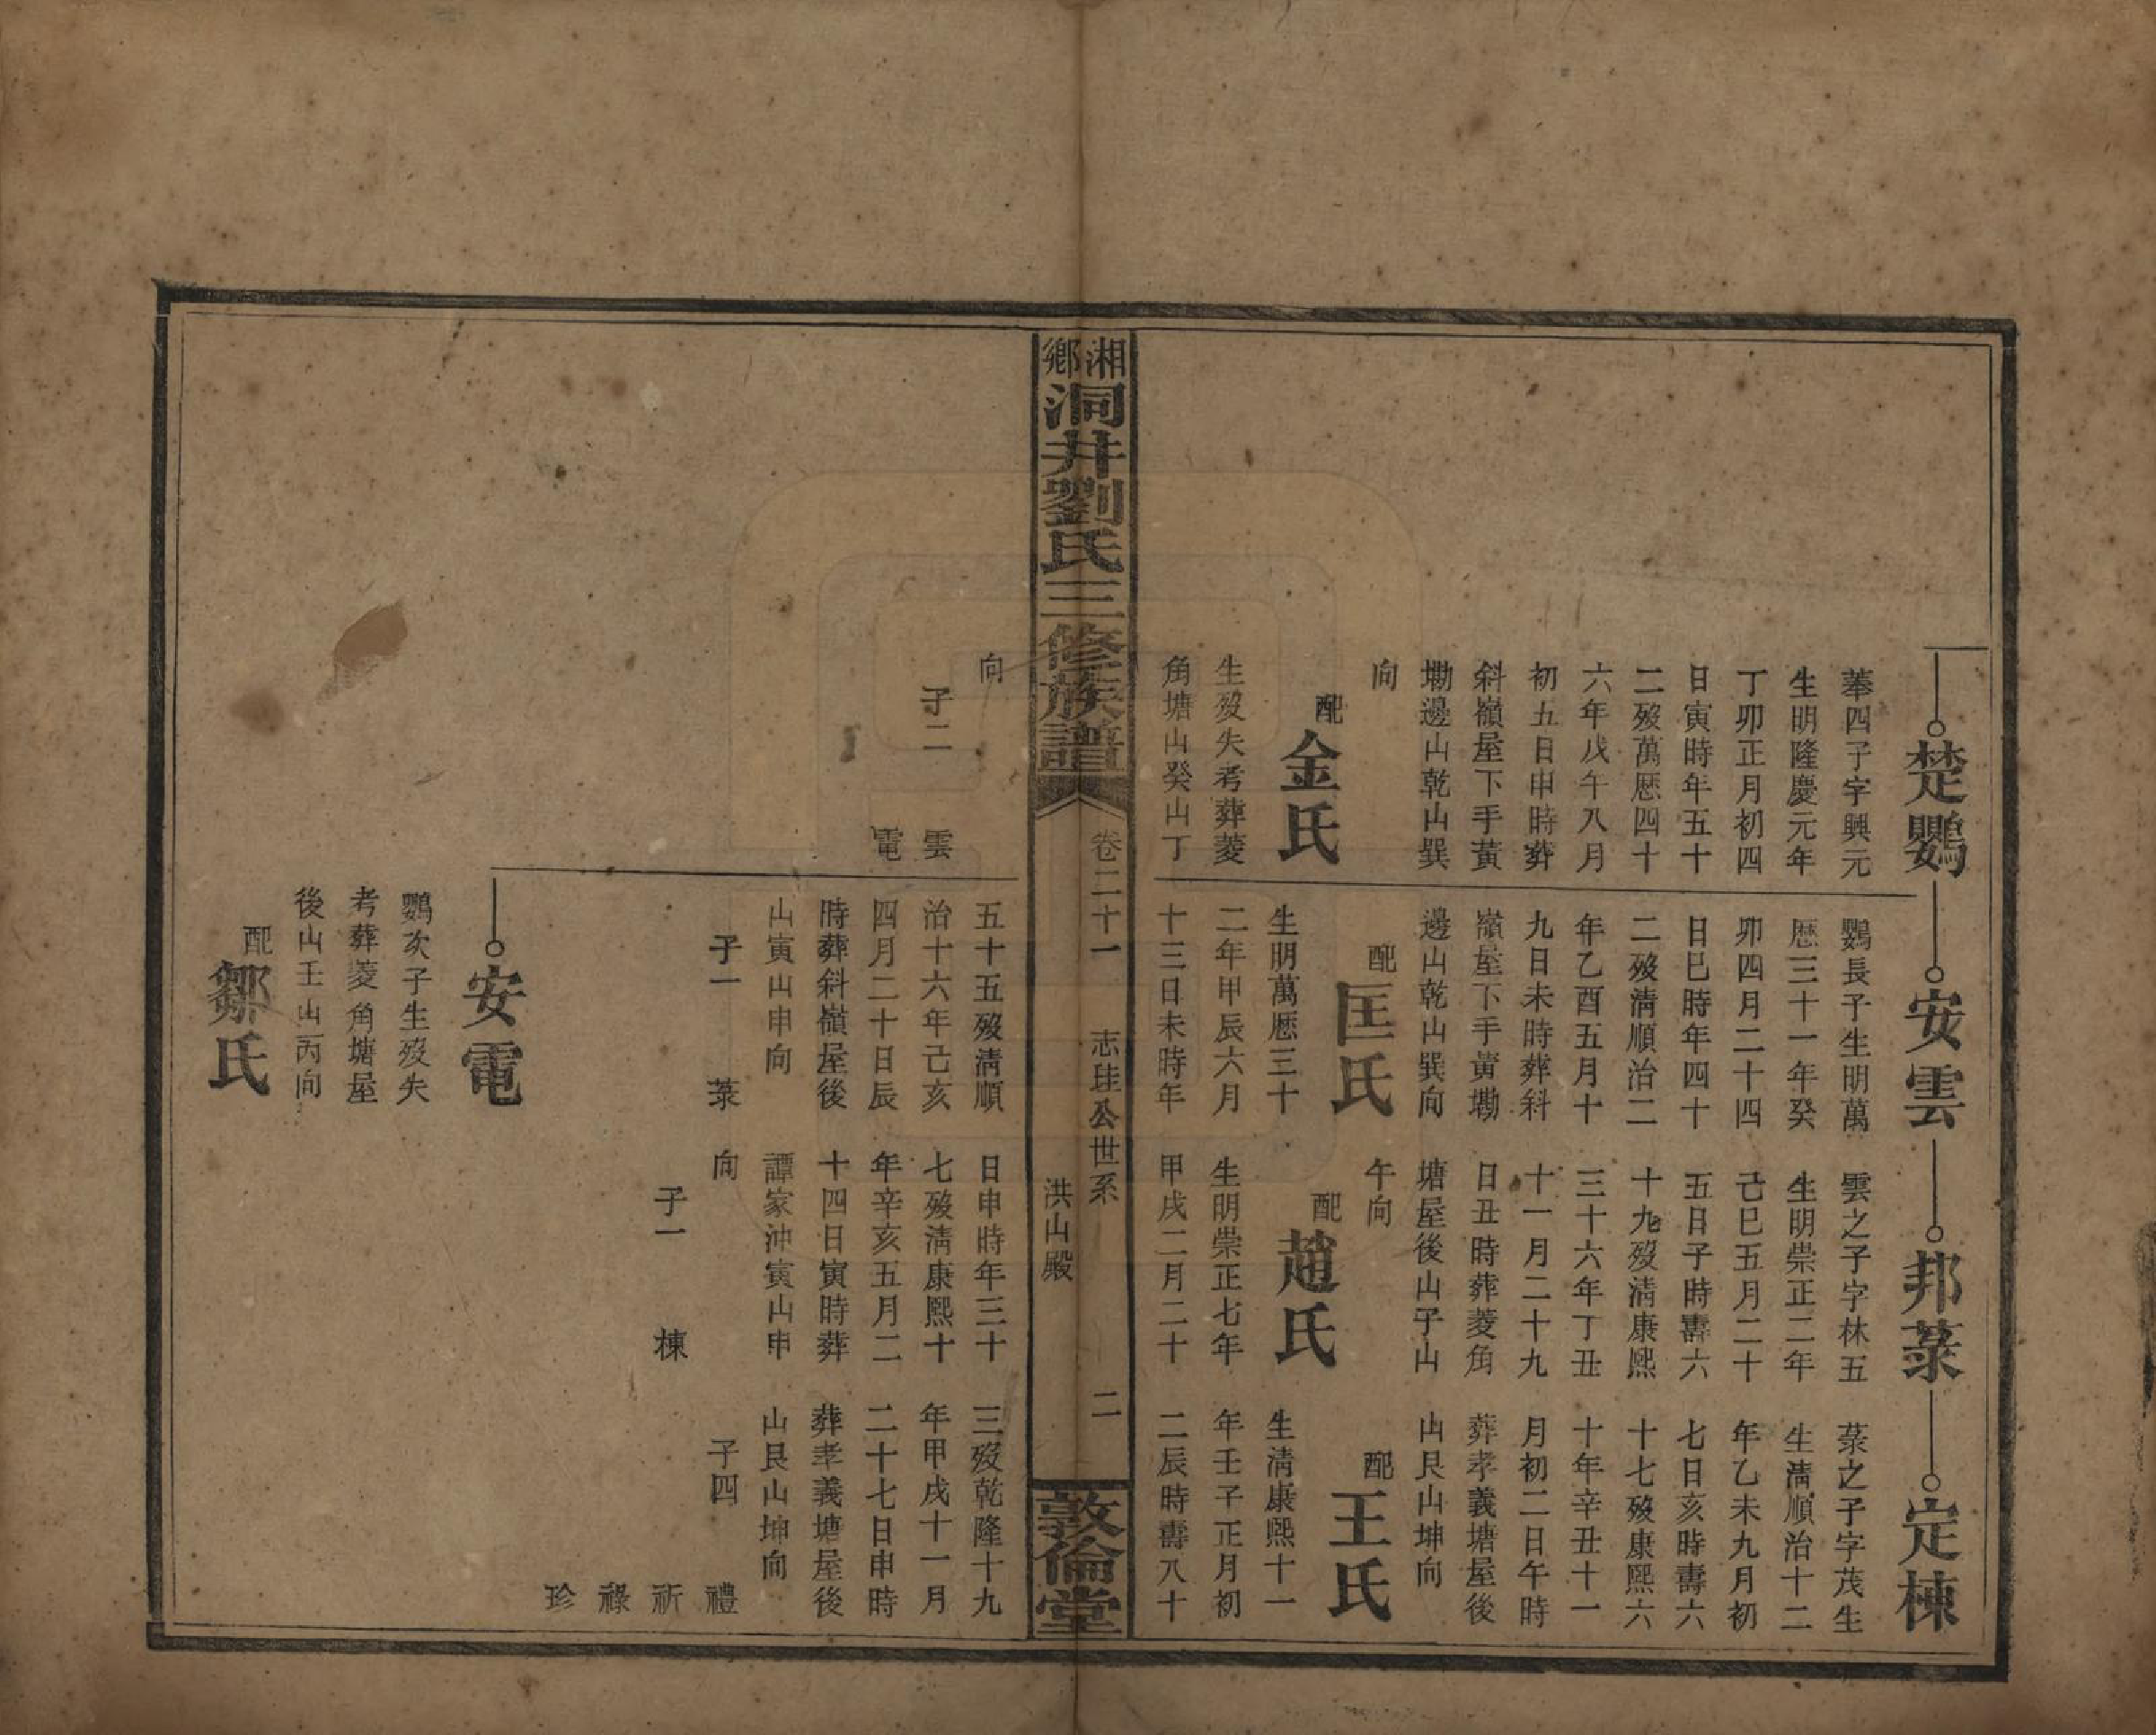 楚鸚
菶四子字興元
生明隆慶元年
丁卯正月初四
日寅時年五十
二殁萬曆四十
六年戊午八月
初五日申時葬
斜嶺屋下手黃
墈邊山乾山巽
向
配金氏
生殁失考葬菱
角塘山癸山丁
向
子二
雲
電
安雲
鸚長子生明萬
曆三十一年癸
卯四月二十四
日巳時年四十
二殁淸順治二
年乙酉五月十
九日未時葬斜
嶺屋下手黃墈
邊山乾山巽向
配匡氏
生明萬曆三十
二年甲辰六月
十三日未時年
五十五殁淸順
治十六年己亥
四月二十日辰
時葬斜嶺屋後
山寅山申向
子一
菉
安電
鸚次子生殁失
考葬菱角塘屋
後山壬山丙向
配鄒氏
邦菉
雲之子字林五
生明崇正二年
己巳五月二十
五日子時壽六
十九殁淸康熙
三十六年丁丑
十一月二十九
日丑時葬菱角
塘屋後山子山
午向
配趙氏
生明崇正七年
甲戌二月二十
日申時年三十
七殁淸康熙十
年辛亥五月二
十四日寅時葬
譚家沖寅山申
向
子一
棟
定棟
菉之子字茂生
生淸順治十二
年乙未九月初
七日亥時壽六
十七殁康熙六
十年辛丑十一
月初二日午時
葬孝義塘屋後
山艮山坤向
配王氏
生淸康熙十一
年壬子正月初
二辰時壽八十
三殁乾隆十九
年甲戌十一月
二十七日申時
葬孝義塘屋後
山艮山坤向
子四
禮
祈
祿
珍
湘鄉洞井劉氏三修族譜
卷二十一 志珪公世系 二
洪山殿
敦倫堂